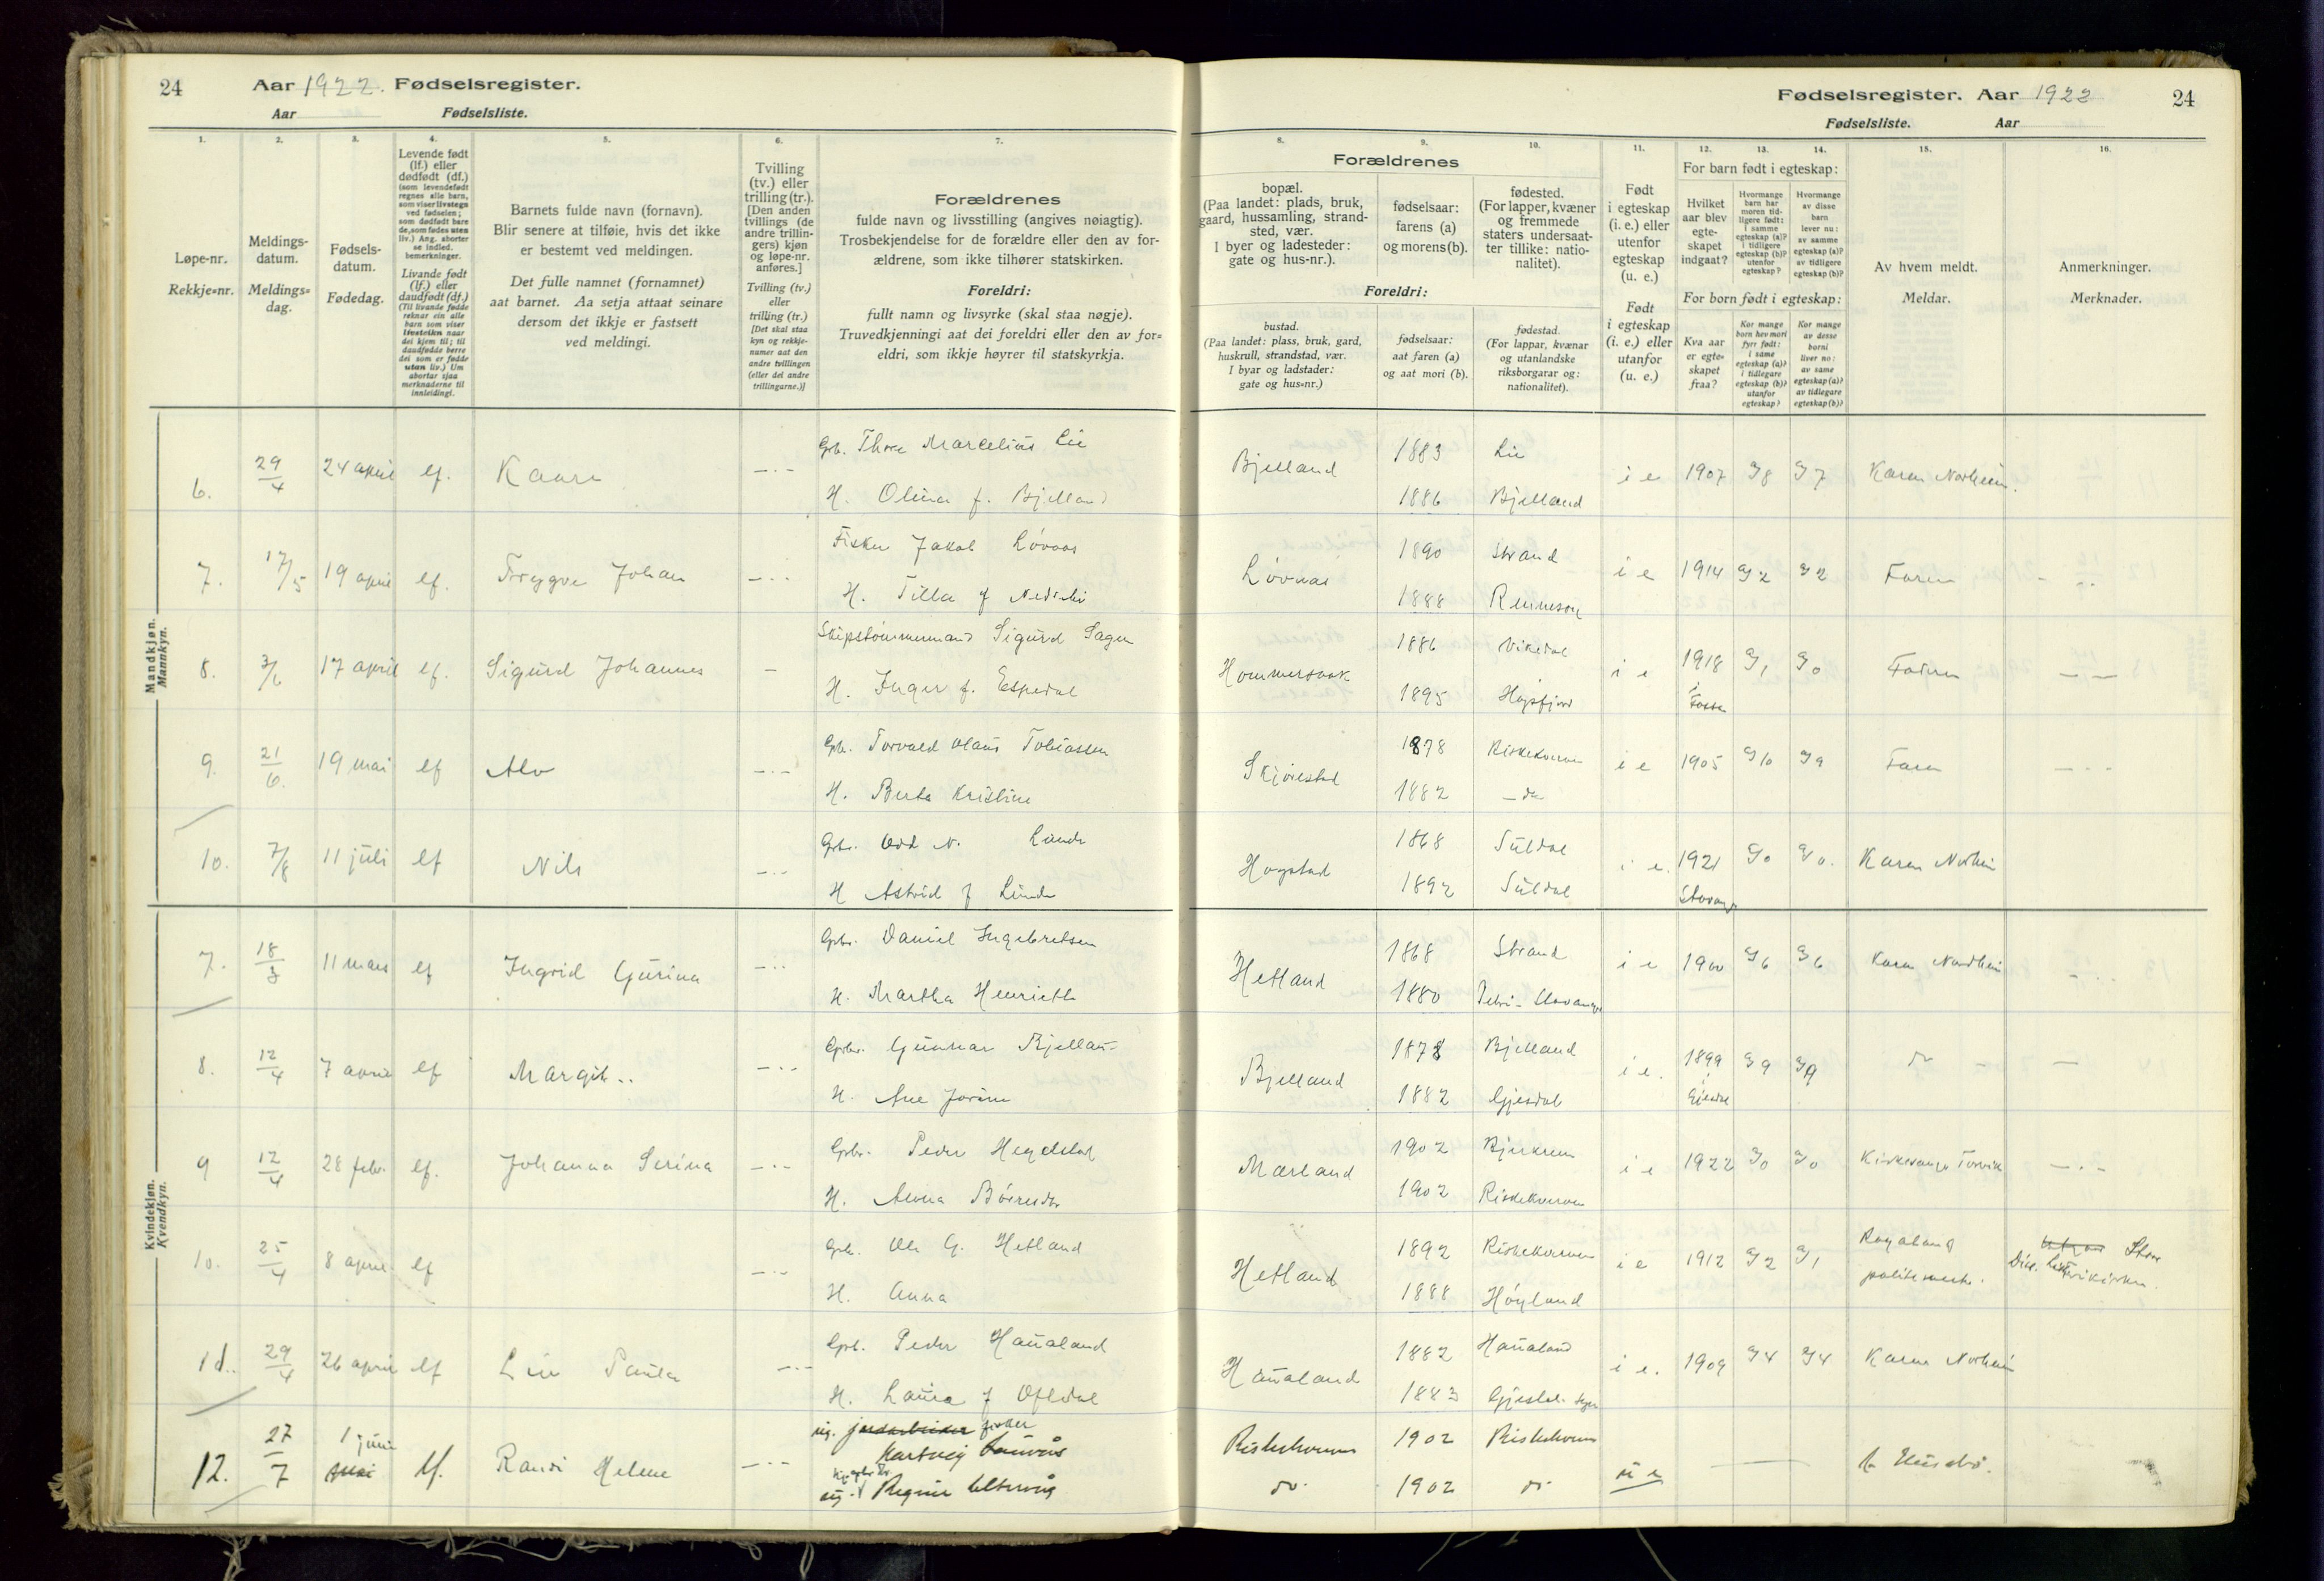 24
Aar 1922. Fødselsregister.
Aar Fødselsliste.
1.
2.
3.
4.
5.
6.
7.
Løpe-nr.
Rekkje-nr.
Meldings-
datum.
Meldings-
dag.
Fødsels-
datum.
Fødedag.
Levende født
(lf.) eller
dødfødt (df.)
(som levendefødt
regnes alle barn,
som viser livstegn
ved fødselen;
som dødfødt bare
de, som fødes uten
liv.) Ang. aborter
se indled.
bemerkninger.
Livande født
(lf.) eller
daudfødt (df.)
(Til livande fødde
reknar ein alle
barn som viser
livsteikn naar
dei kjem til; til
daudfødde berre
dei som er fødde
utan liv.) Um
abortar sjaa
merknaderne til
innleidingi.
Barnets fulde navn (fornavn).
Blir senere at tilføie, hvis det ikke
er bestemt ved meldingen.
Det fulle namnet (fornamnet)
aat barnet. Aa setja attaat seinare
dersom det ikkje er fastsett
ved meldingi.
Tvilling
(tv.) eller
trilling (tr.).
[Den anden
tvillings (de
andre trillin-
gers) kjøn
og løpe-nr.
anføres.]
Tvilling (tv.)
eller
trilling (tr.)
[Det skal staa
kyn og rekkje-
numer aat den
andre tvillingen
(eller dei andre
trillingarne.)]
Forældrenes
fulde navn og livsstilling (angives nøiagtig).
Trosbekjendelse for de forældre eller den av for-
ældrene, som ikke tilhører statskirken.
Foreldri:
fullt namn og livsyrke (skal staa nøgje).
Truvedkjenningi aat dei foreldri eller den av for-
eldri, som ikkje høyrer til statskyrkja.
Mandkjøn.
Mannkyn.
6. 29/4 24 april lf. Kaare
Gb. Thore Marcelius Lie
H. Olina f. Bjelland
7. 17/5 19 april lf. Trygve Johan
Fisker Jakob Løvaas
H. Tilla f
8. 3/6 17 april lf. Sigurd Johannes
Skipstømmermand Sigurd Sagen
H. Inger f. Espedal
9. 21/6 19 mai lf Alv
Gb. Torvald Olaus Tobiassen
H. Berta Kristine
10. 7/8 11 juli lf Nils
Gbr. Odd N. Lunde
H Astrid f Lunde
Kvindekjøn.
Kvendkyn.
7. 18/3 11 mars lf Ingrid Gurina
Gbr. Daniel Ingebretsen
H. Martha Henriette
8. 12/4 7 april lf Margit
Gbr. Gunnar Bjelland
H. Ane
9 12/4 28 febr. lf. Johanna Serina
Gbr. Peder Hegelstad
H. Anna
10. 25/4 8 april lf
Gb. Ole G. Hetland
H. Anna
11. 29/4 26 april lf Liv Paula
Gbr. Peder Haualand
H. Laura f Oftedal
12. 27/7 1 juni lf. Randi Helene
ug. fisker
Hartvig
ug. Regine
24
Fødselsregister. Aar 1922
Fødselsliste. Aar
8.
9.
10.
11.
12.
13.
14.
15.
16.
Forældrenes
bopæl.
(Paa landet: plads, bruk,
gaard, hussamling, strand-
sted, vær.
I byer og ladesteder:
gate og hus-nr.).
fødselsaar:
farens (a)
og morens (b).
fødested.
(For lapper, kvæner
og fremmede
staters undersaat-
ter tillike: natio-
nalitet).
Foreldri:
bustad.
(Paa landet: plass, bruk, gard,
huskrull, strandstad, vær.
I byar og ladstader:
gate og hus-nr.)
fødselsaar:
aat faren (a)
og aat mori (b).
fødestad.
(For lappar, kvænar
og utanlandske
riksborgarar og:
nationalitet).
Født
i egteskap
(i. e.) eller
utenfor
egteskap
(u. e.)
Født
i egteskap
(i. e.) eller
utanfor
egteskap
(u. e.)
For barn født i egteskap:
Hvilket
aar blev
egte-
skapet
indgaat?
Hvormange
barn har
moren tid-
ligere født:
i samme
egteskap (a)?
i tidligere
egteskap (b)?
utenfor
egteskap?
Hvormange
av disse
barn
lever nu:
av samme
egteskap (a)?
av tidligere
egteskap (b)?
For born født i egteskap:
Kva aar
er egte-
skapet
fraa?
Kor mange
born hev mori
fyrr født:
i same
egteskap (a)?
i tidlegare
egteskap (b)?
utanfor
egteskap?
Kor mange
av desse
borni
liver no:
av same
egteskap (a)?
av tidlegare
egteskap (b)?
Av hvem meldt.
Meldar.
Anmerkninger.
Merknader.
Bjelland 1883 Lie i e 1907 a/8 a/7 Karen Norheim.
1886 Bjelland
1890 Strand i e 1914 a/2 a/2 Faren
1888 Rennesøy
Hommersaak 1886 Vikedal i e 1918 a/1 a/0 Faren
1895 Høgsfjord
Skjørestad 1878 Riskekverven i e 1905 a/10 a/9 Faren
1882 do
Hogstad 1868 Suldal i e. 1921 a/0 a/0. Karen Norheim
1892 Suldal Stavanger
Hetland 1868 Strand i e 1900 a/6 a/6 Karen Nordheim
1880 Stavanger
Bjelland 1878 Bjelland i e. 1899 a/9 a/9 do
1882 Gjesdal Gjesdal
Mæland 1902 Bjerkreim i e 1922 a/0 a/0 Kirkesanger Torvik
1902 Riskekverven
Hetland 1892 Riskekverven i e 1912 a/2 a/1 Rogaland
1888 Høyland politimester.
Haualand 1882 Haualand i e. 1909 a/4 a/4 Karen Norheim
1883 Gjesdal
Riskekverven 1902 Riskekverven u e
do. 1902 do